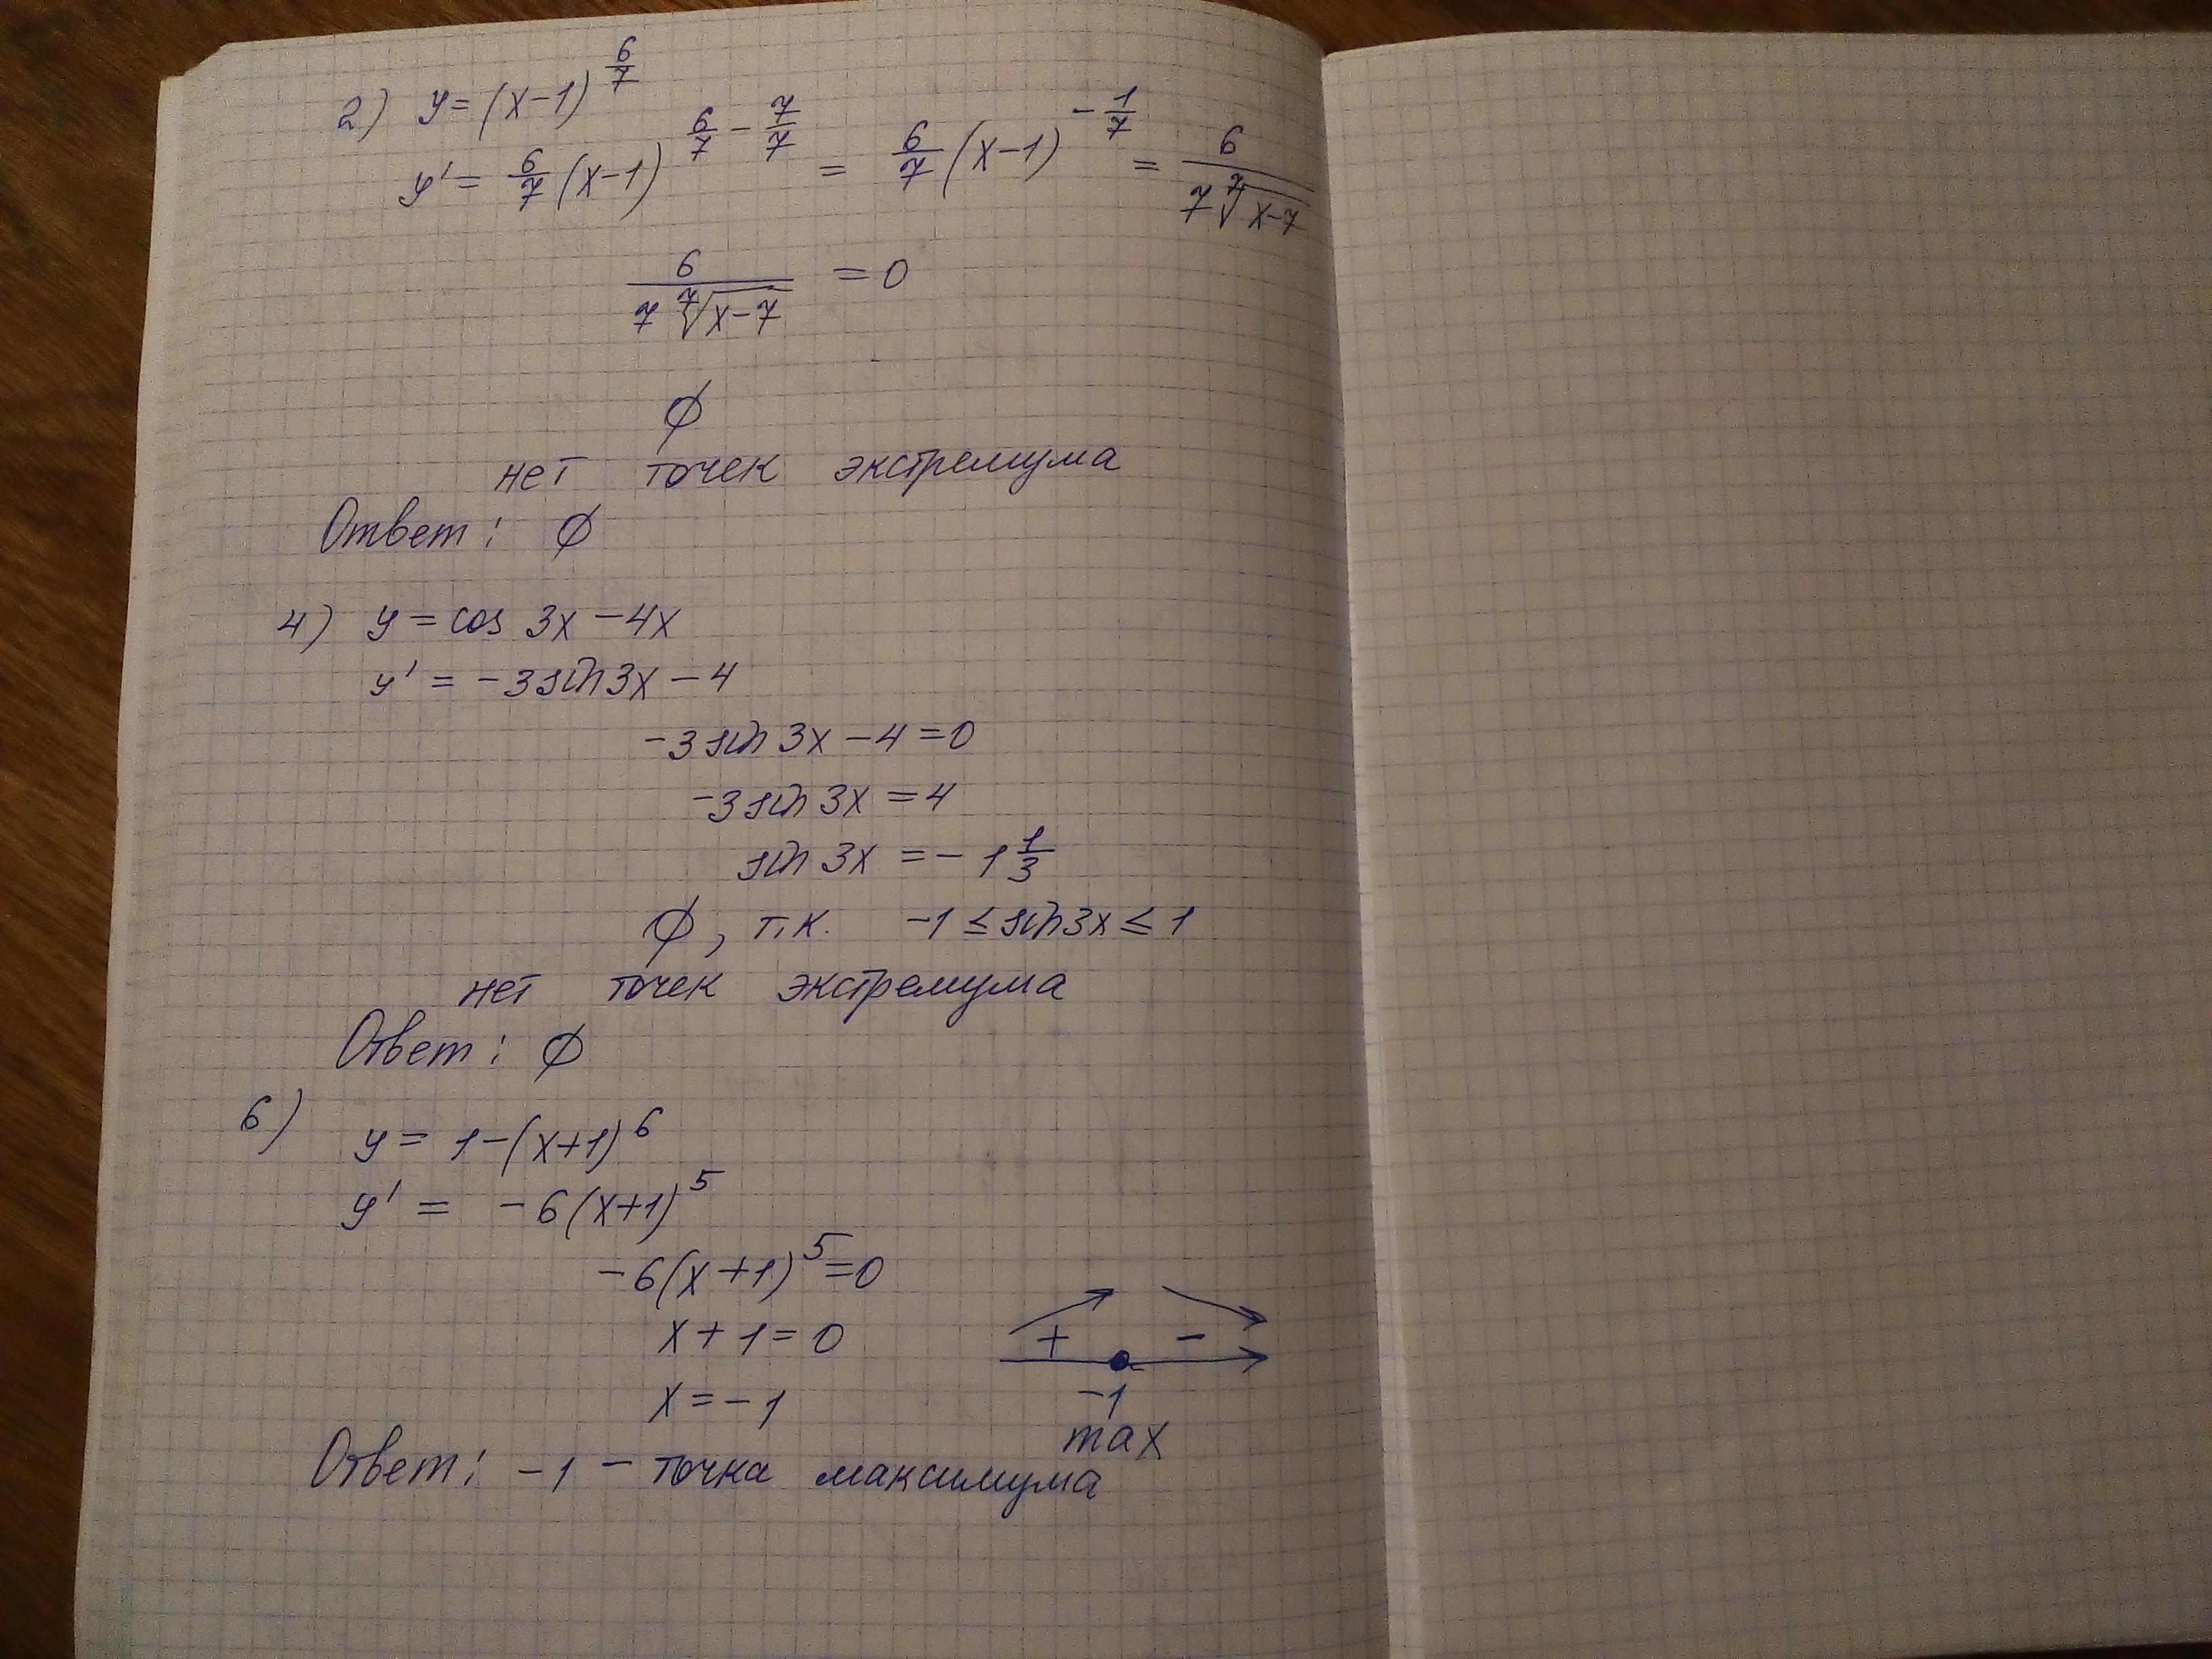 2) y = (x-1)^{6/7}
y' = 6/7 (x-1)^{6/7 - 7/7} = 6/7 (x-1)^{-1/7} = 6/(7 ⁷√(x-7))
6/(7 ⁷√(x-7)) = 0
∅
нет точек экстремума
Ответ: ∅
4) y = cos 3x - 4x
y' = -3 sin 3x - 4
-3 sin 3x - 4 = 0
-3 sin 3x = 4
sin 3x = - 1 1/3
∅, т.к. -1 ≤ sin 3x ≤ 1
нет точек экстремума
Ответ: ∅
6)
y = 1 - (x+1)^6
y' = -6(x+1)^5
-6(x+1)^5 = 0
x + 1 = 0
+ -
x = -1
-1
max
Ответ: -1 - точка максимума